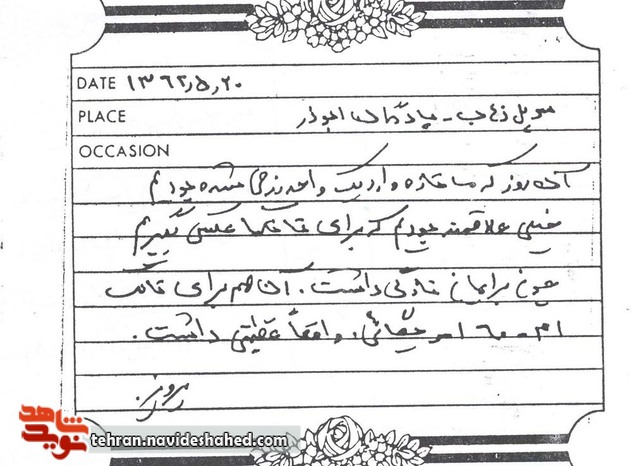 DATE ۱۳۶۲٫۵٫۲۰
PLACE سرپل ذهاب - پادگان ابوذر
OCCASION
آن روز که ما تازه وارد یک واحد زرهی شده بودیم
خیلی علاقمند بودیم که برای تانکها عکس بگیریم
چون برایمان تازگی داشت. آن هم برای تانک
ام - ٦٠ امریکائی، واقعاً عظمتی داشت.
شاهد
نوید
tehran.navideshahed.com